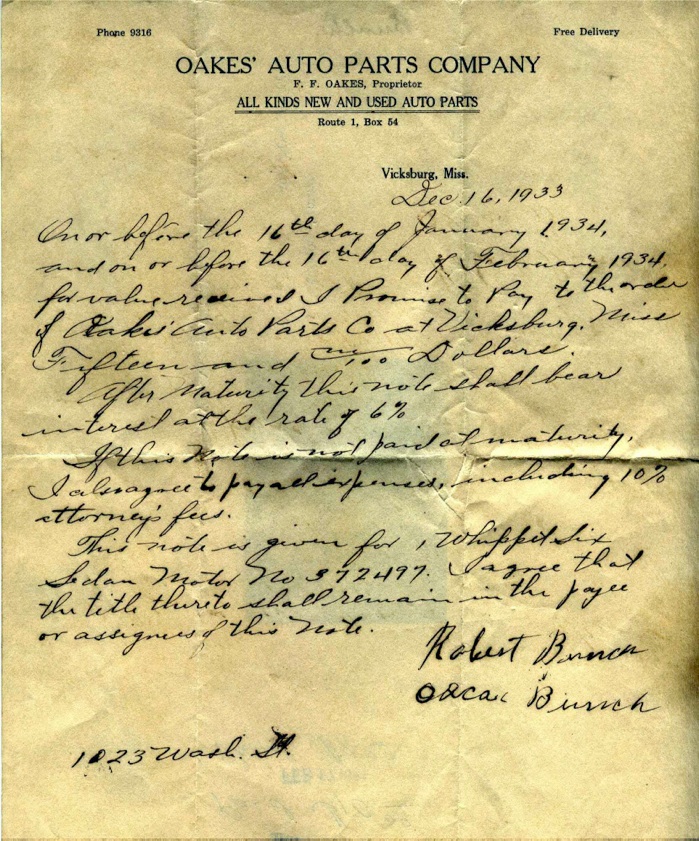 Phone 9316
Free Delivery
OAKES' AUTO PARTS COMPANY
F. F. OAKES, Proprietor
ALL KINDS NEW AND USED AUTO PARTS
Route 1, Box 54
Vicksburg, Miss.
Dec. 16, 1933
On or before the 16th day of January 1934,
and on or before the 16th day of February 1934,
for value received I Promise to Pay to the order
of Oakes' Auto Parts Co at Vicksburg, Miss
Fifteen and no/100 Dollars.
After Maturity this note shall bear
interest at the rate of 6%
If this Note is not paid at maturity,
I also agree to pay all expenses, including 10%
attorney's fees.
This note is given for 1 Whippet Six
Sedan Motor No 372497. I agree that
the title thereto shall remain in the payee
or assignees of this Note.
Robert
Oscar
1023 Wash. St.